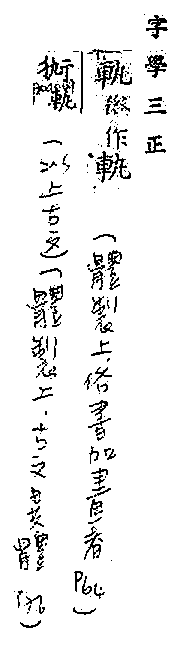 字學三正
軌俗作軏
(體製上.俗書加畫者 P64)
(以上古文)(體製上.古文異體 P36)